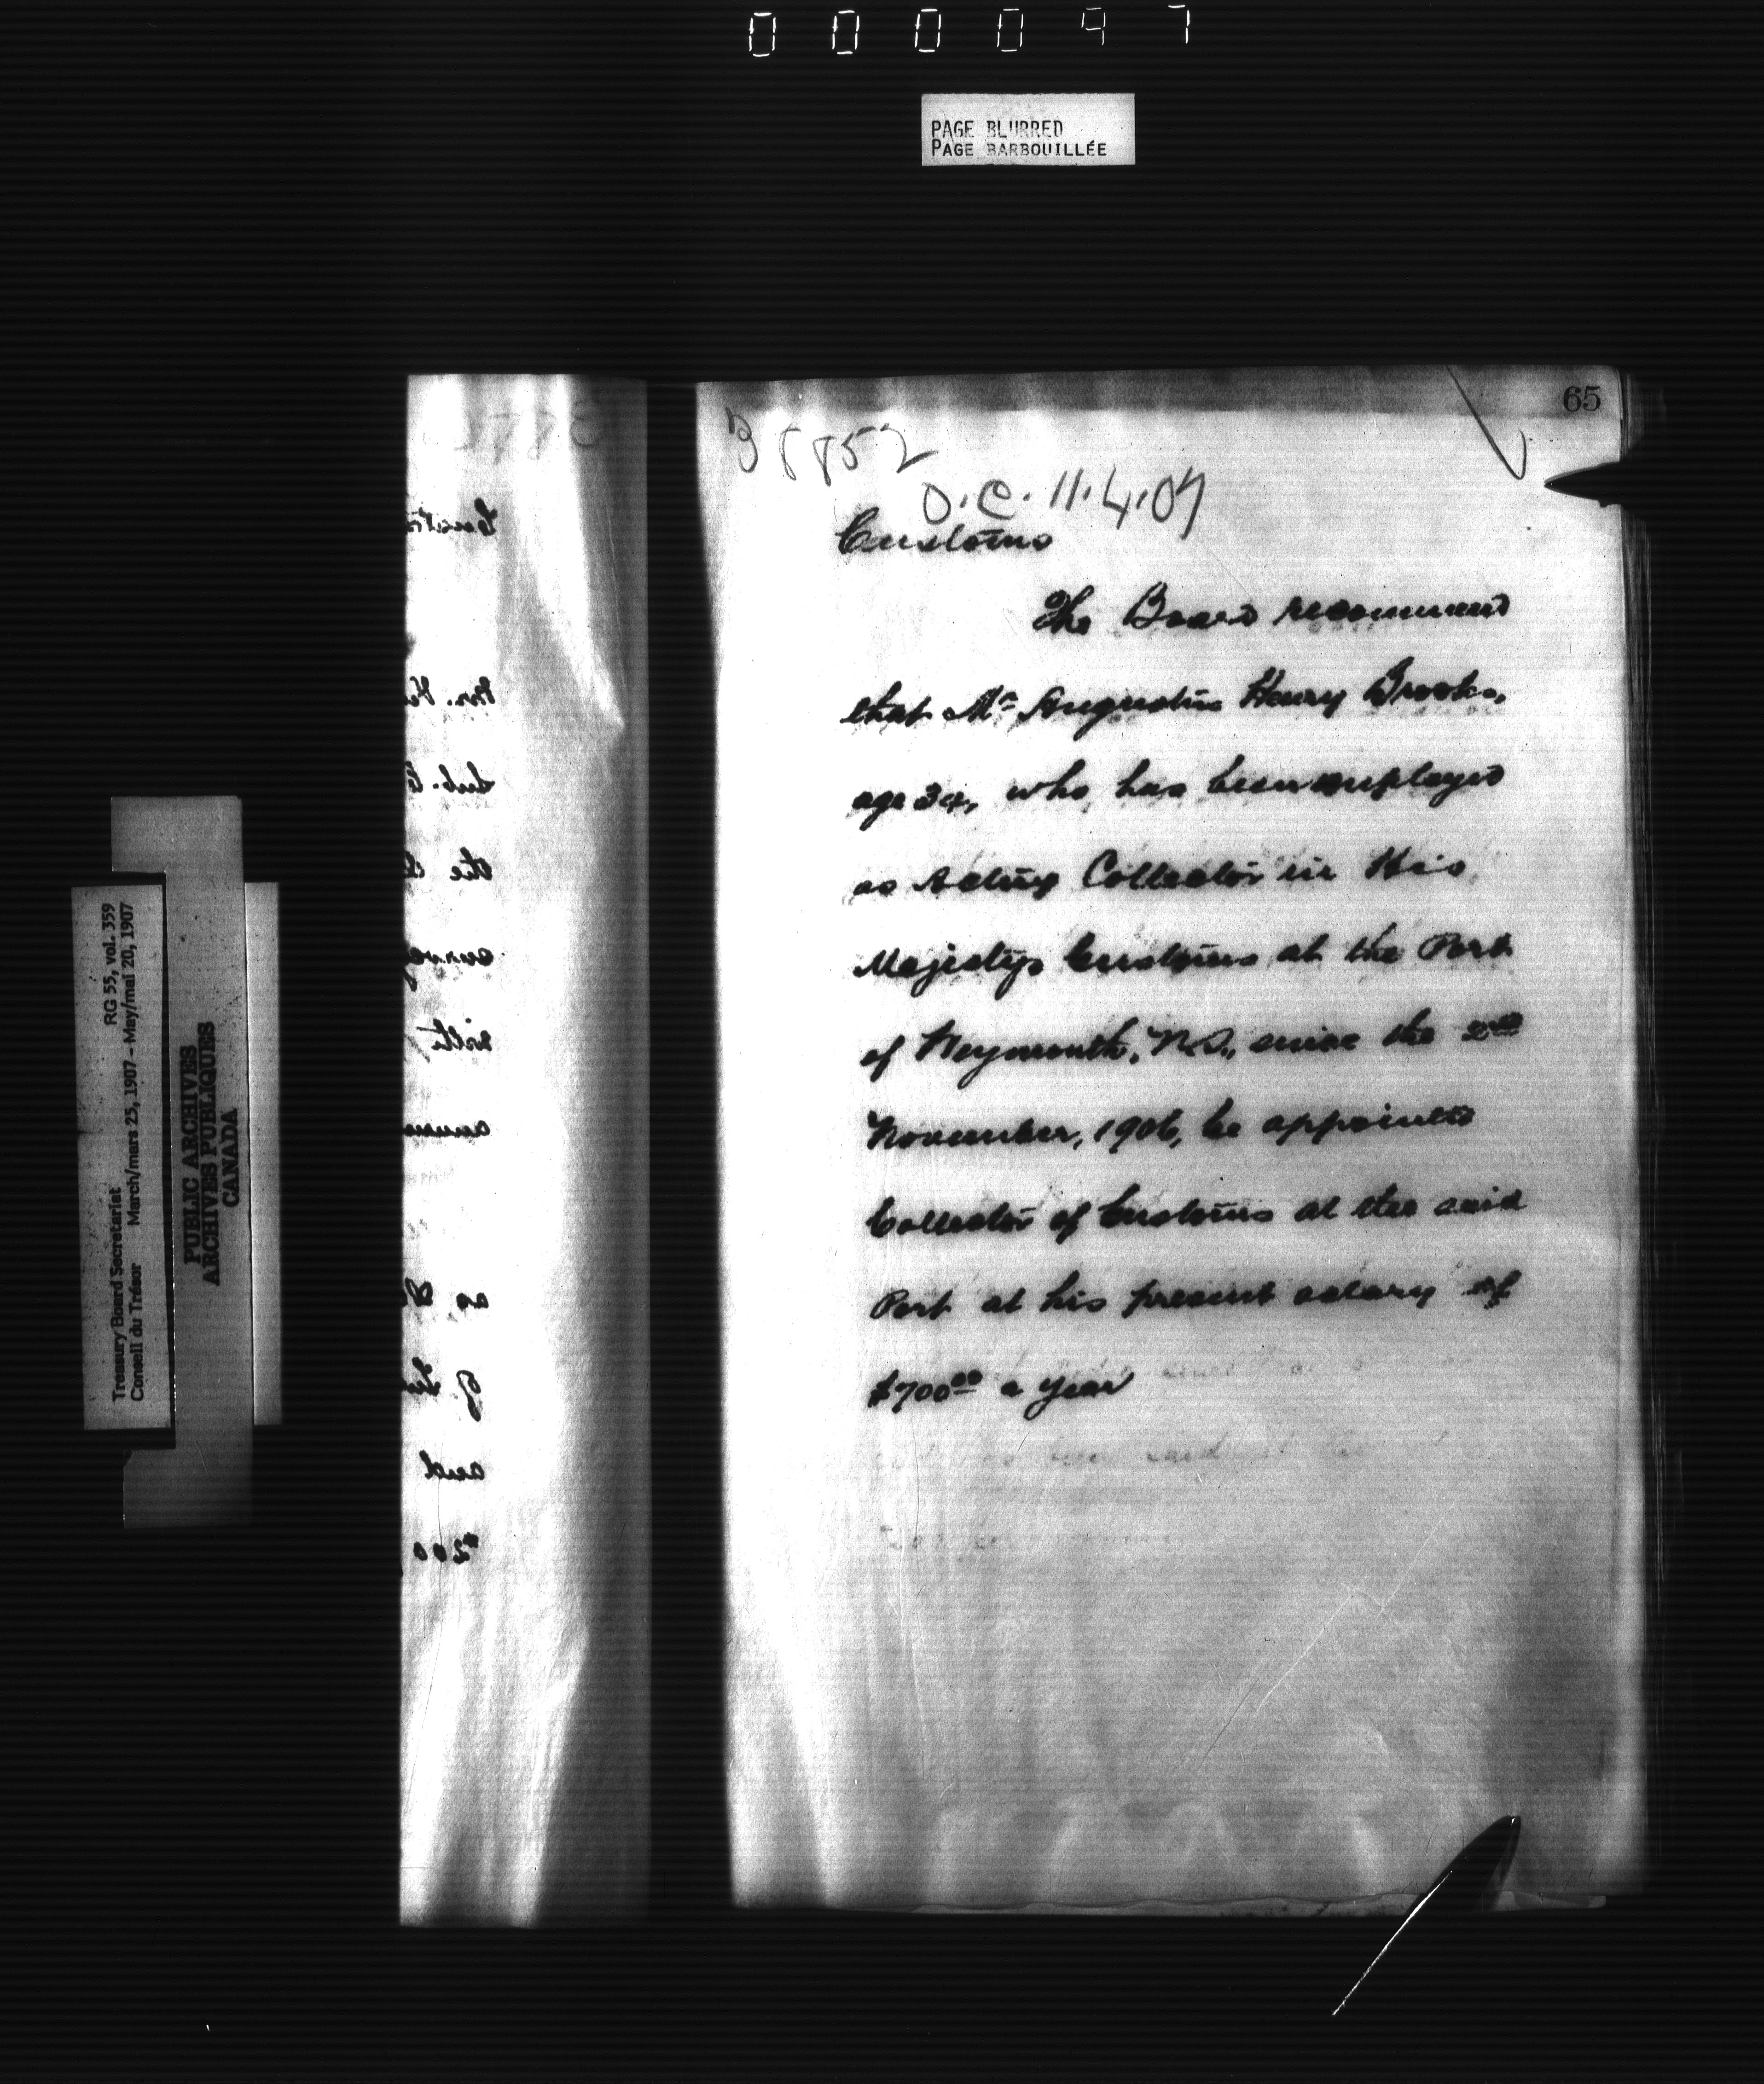 000097
PAGE BLURRED
PAGE BARBOUILLÉE
65
38852
O.C. 11.4.07
Customs
The Board recommend
that Mr Augustus Henry Brooks,
age 34, who has been employed
as Acting Collector in His
Majesty's Customs at the Port
of Weymouth, N.S., since the 2nd
November, 1906, be appointed
Collector of Customs at the said
Port at his present salary of
$700.00 a year
Treasury Board Secretariat RG 55, vol. 359
Conseil du Trésor March/mars 25, 1907 – May/mai 20, 1907
PUBLIC ARCHIVES
ARCHIVES PUBLIQUES
CANADA